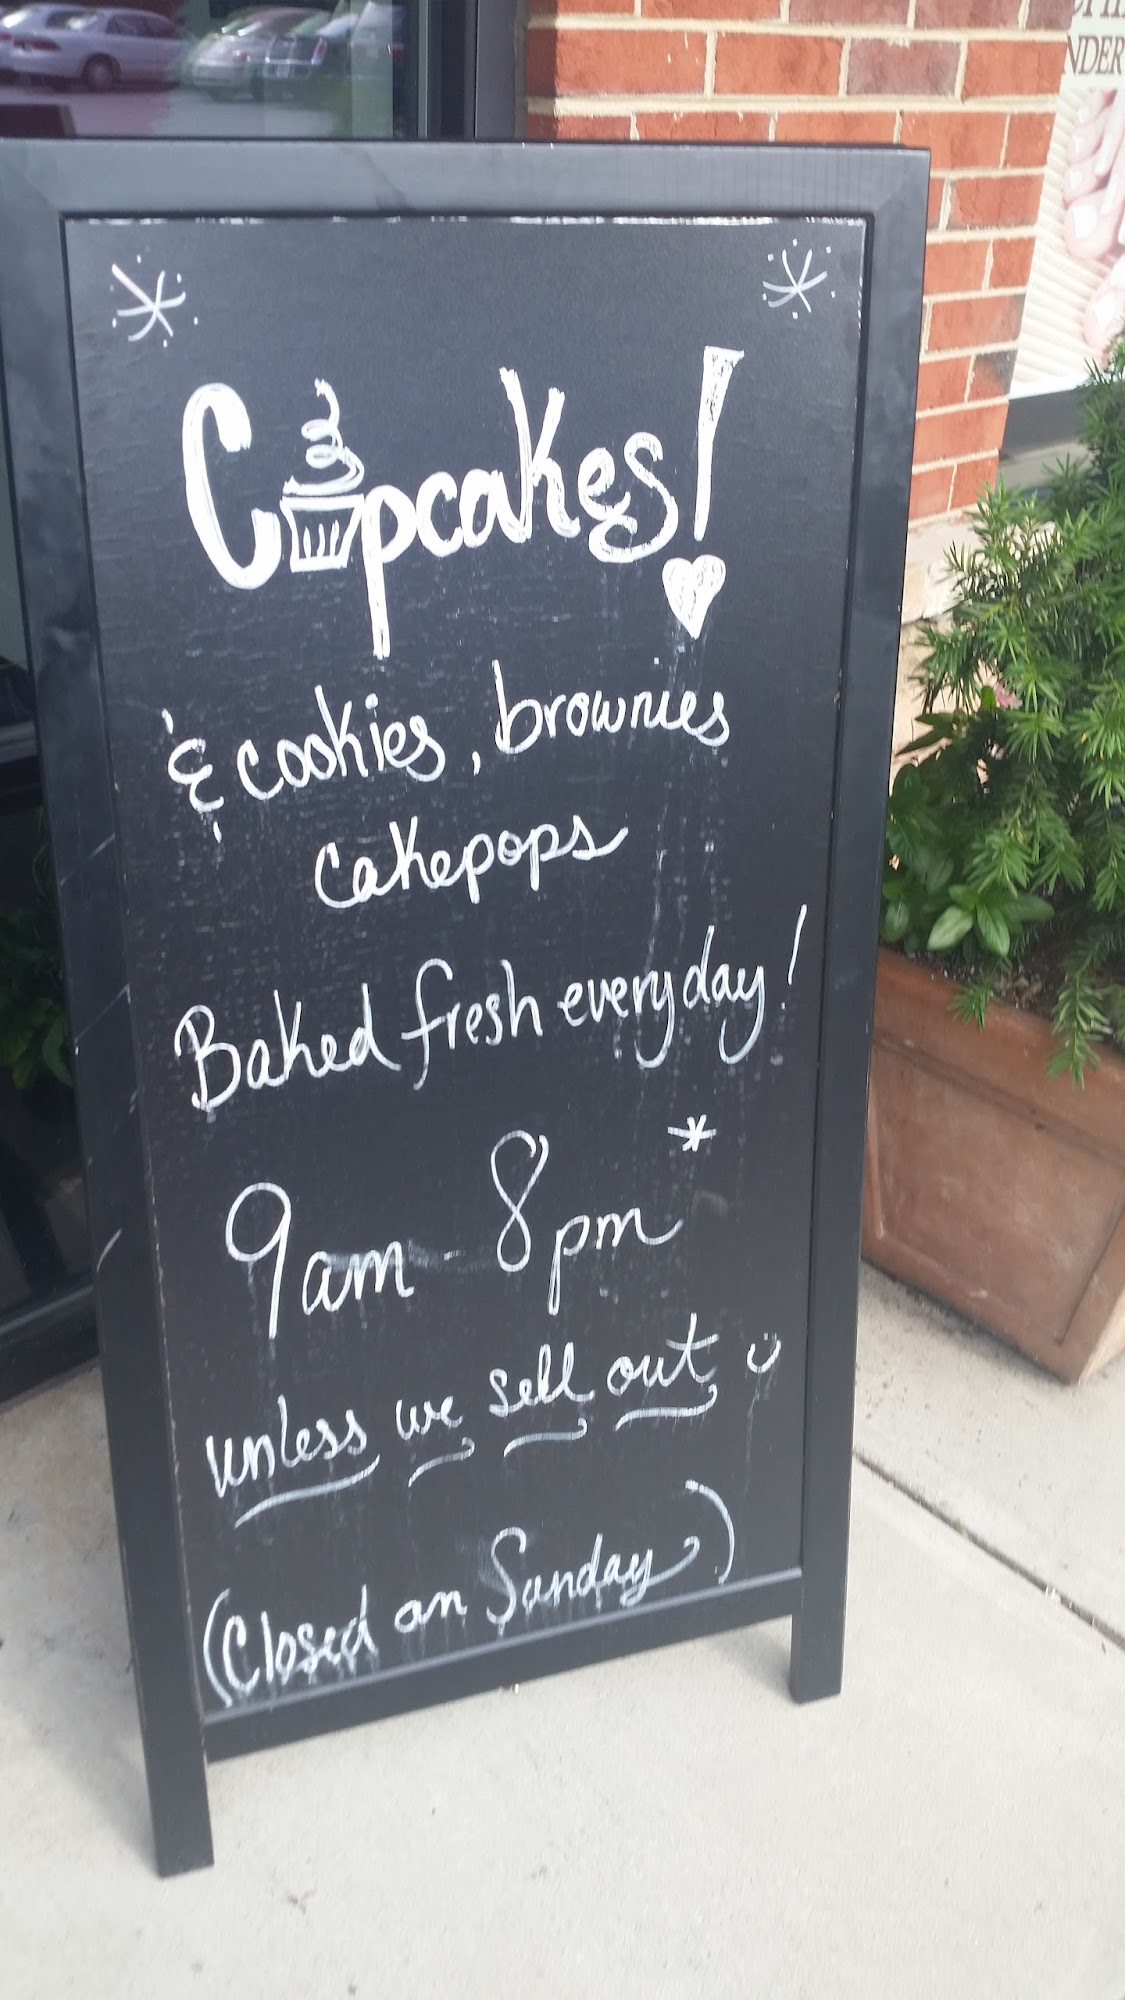 Cupcakes!
& cookies, brownies
cakepops
Baked fresh everyday!
9am - 8pm*
unless we sell out
(Closed on Sunday)
NDER